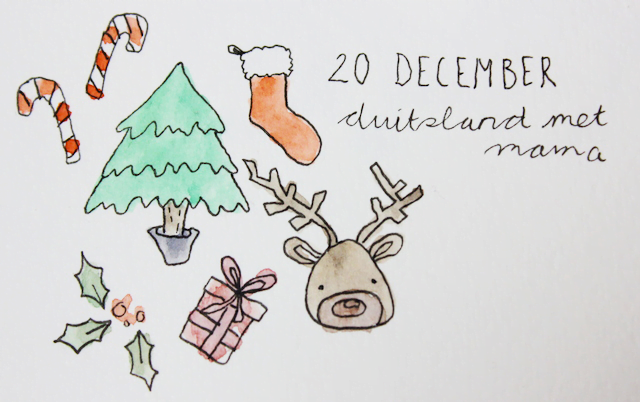 20 DECEMBER
duitsland met
mama